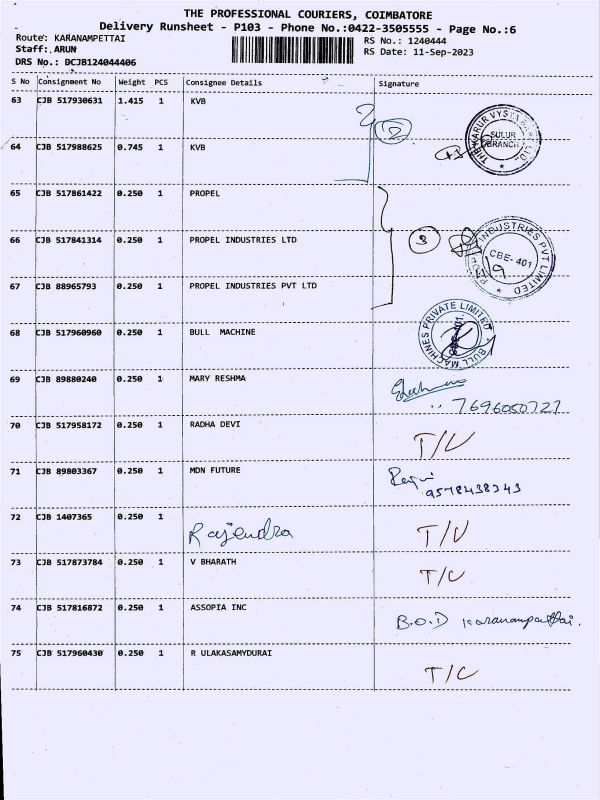 THE PROFESSIONAL COURIERS, COIMBATORE
Delivery Runsheet - P103 - Phone No.:0422-3505555 - Page No.:6
Route: KARANAMPETTAI RS No.: 1240444
Staff: ARUN RS Date: 11-Sep-2023
DRS No.: DCJB124044406
S No Consignment No Weight PCS Consignee Details Signature
63 CJB 517930631 1.415 1 KVB
2
THE KARUR VYSYA BANK LTD
SULUR
BRANCH
64 CJB 517988625 0.745 1 KVB
65 CJB 517861422 0.250 1 PROPEL
66 CJB 517841314 0.250 1 PROPEL INDUSTRIES LTD
3
PROPEL INDUSTRIES PVT LIMITED
CBE-401
67 CJB 88965793 0.250 1 PROPEL INDUSTRIES PVT LTD
68 CJB 517960960 0.250 1 BULL MACHINE
BULL MACHINES PRIVATE LIMITED
69 CJB 89880240 0.250 1 MARY RESHMA
7696050727
70 CJB 517958172 0.250 1 RADHA DEVI
71 CJB 89803367 0.250 1 MDN FUTURE
9578438343
72 CJB 1407365 0.250 1
Rajendra
73 CJB 517873784 0.250 1 V BHARATH
T/C
74 CJB 517816872 0.250 1 ASSOPIA INC
B.O.D Karanampattai.
75 CJB 517960430 0.250 1 R ULAKASAMYDURAI
T/C